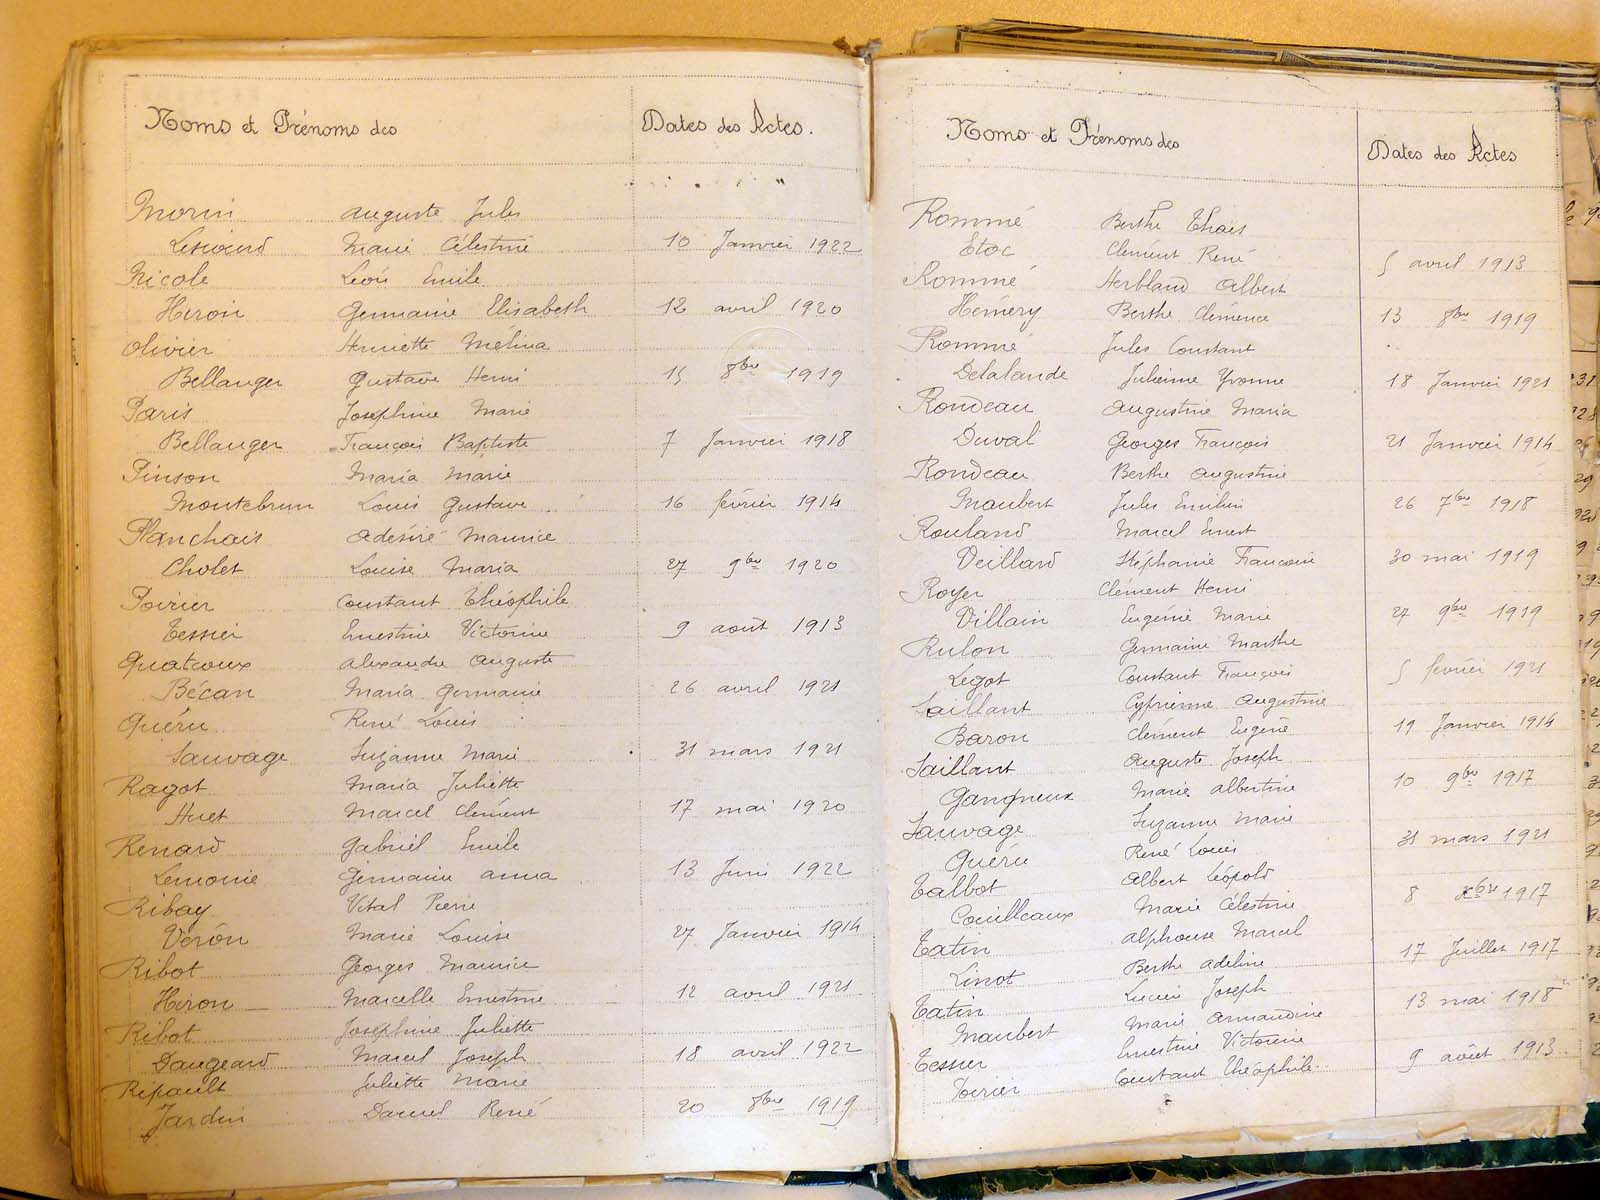 Noms et Prénoms des Dates des Actes.
Morin Auguste Jules
Marie Célestine 10 Janvier 1922
Nicole Léon Emile
Hiron Germaine Elisabeth 12 avril 1920
Olivier Henriette Mélina
Bellanger Gustave Henri 15 8bre 1919
Paris Joséphine Marie
Bellanger François Baptiste 7 Janvier 1918
Pinson Maria Marie
Montebrun Louis Gustave 16 février 1914
Planchais Adésiré Maurice
Cholet Louise Maria 27 9bre 1920
Poirier Constant Théophile
Tessier Ernestine Victorine 9 août 1913
Quatroux Alexandre Auguste
Bécan Maria Germaine 26 avril 1921
Quéru René Louis
Sauvage Suzanne Marie 31 mars 1921
Ragot Maria Juliette
Huet Marcel Clément 17 mai 1920
Renard Gabriel Emile
Lemoine Germaine Anna 13 Juin 1922
Ribay Vital Pierre
Véron Marie Louise 27 Janvier 1914
Ribot Georges Maurice
Hiron Marcelle Ernestine 12 avril 1921
Ribot Joséphine Juliette
Daugeard Marcel Joseph 18 avril 1922
Ripault Juliette Marie
Jardin Daniel René 20 8bre 1919
Noms et Prénoms des Dates des Actes
Rommé Berthe Thaïs
Etoc Clément René 5 avril 1913
Rommé Herbland Albert
Hémery Berthe Clémence 13 8bre 1919
Rommé Jules Constant
Delalande Julienne Yvonne 18 Janvier 1921
Rondeau Augustine Maria
Duval Georges François 21 Janvier 1914
Rondeau Berthe Augustine
Maubert Jules Emilien 26 7bre 1918
Rouland Marcel Ernest
Veillard Stéphanie Francoise 30 mai 1919
Royer Clément Henri
Villain Eugénie Marie 27 9bre 1919
Rulon Germaine Marthe
Legot Constant François 5 février 1921
Saillant Cyprienne Augustine
Baron Clément Eugène 19 Janvier 1914
Saillant Auguste Joseph
Gangneux Marie Albertine 10 9bre 1917
Sauvage Suzanne Marie
Quéru René Louis 31 mars 1921
Talbot Albert Léopold
Couilleaux Marie Célestine 8 xbre 1917
Tatin Alphonse Marcel
Linot Berthe Adeline 17 Juillet 1917
Tatin Lucien Joseph
Maubert Marie Armandine 13 mai 1918
Tessier Ernestine Victorine
Poirier Constant Théophile 9 août 1913